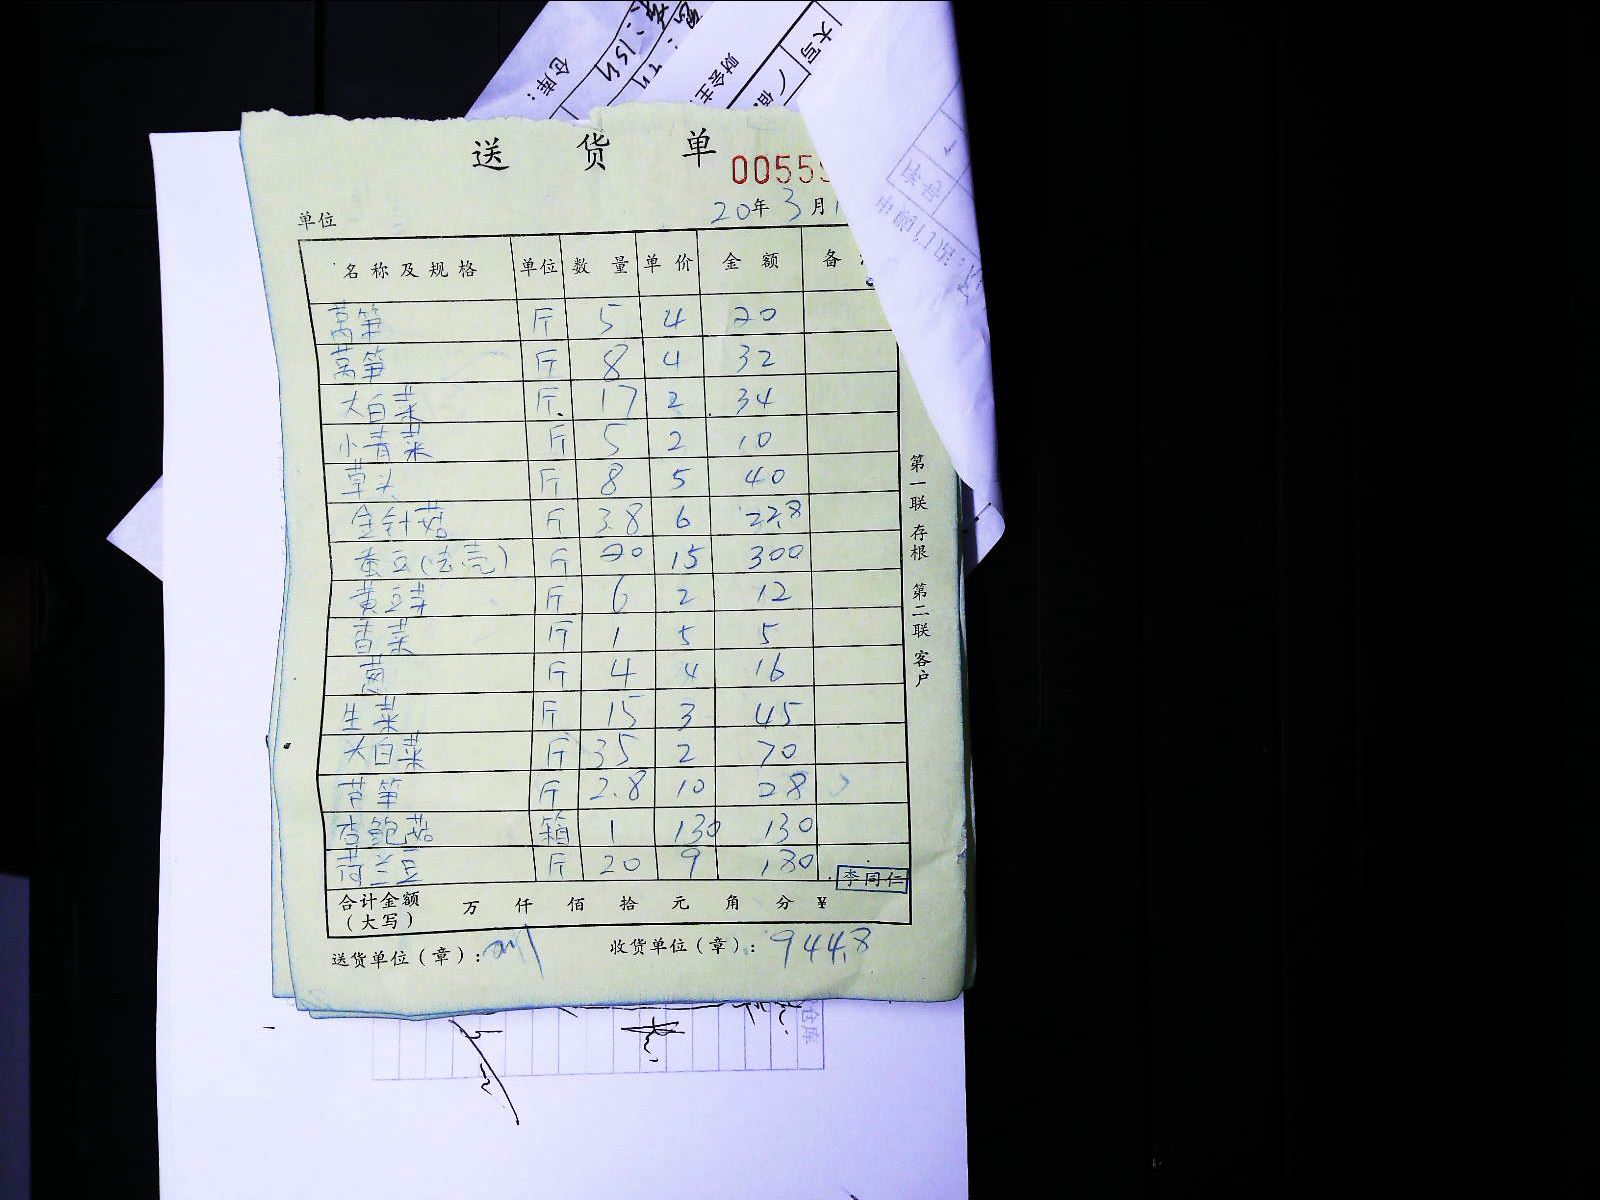 仓库:
财会主
大写
送货单
0055
单位
20年3月1
名称及规格 单位 数量 单价 金额 备
莴笋 斤 5 4 20
莴笋 斤 8 4 32
大白菜 斤 17 2 34
小青菜 斤 5 2 10
草头 斤 8 5 40
金针菇 斤 3.8 6 22.8
蚕豆(去壳) 斤 20 15 300
黄豆芽 斤 6 2 12
香菜 斤 1 5 5
葱 斤 4 4 16
生菜 斤 15 3 45
大白菜 斤 35 2 70
芦笋 斤 2.8 10 28
杏鲍菇 箱 1 130 130
荷兰豆 斤 20 9 180
李同仁
合计金额(大写) 万 仟 佰 拾 元 角 分 ¥
送货单位(章): 收货单位(章): 944.8
第一联 存根 第二联 客户
仓库